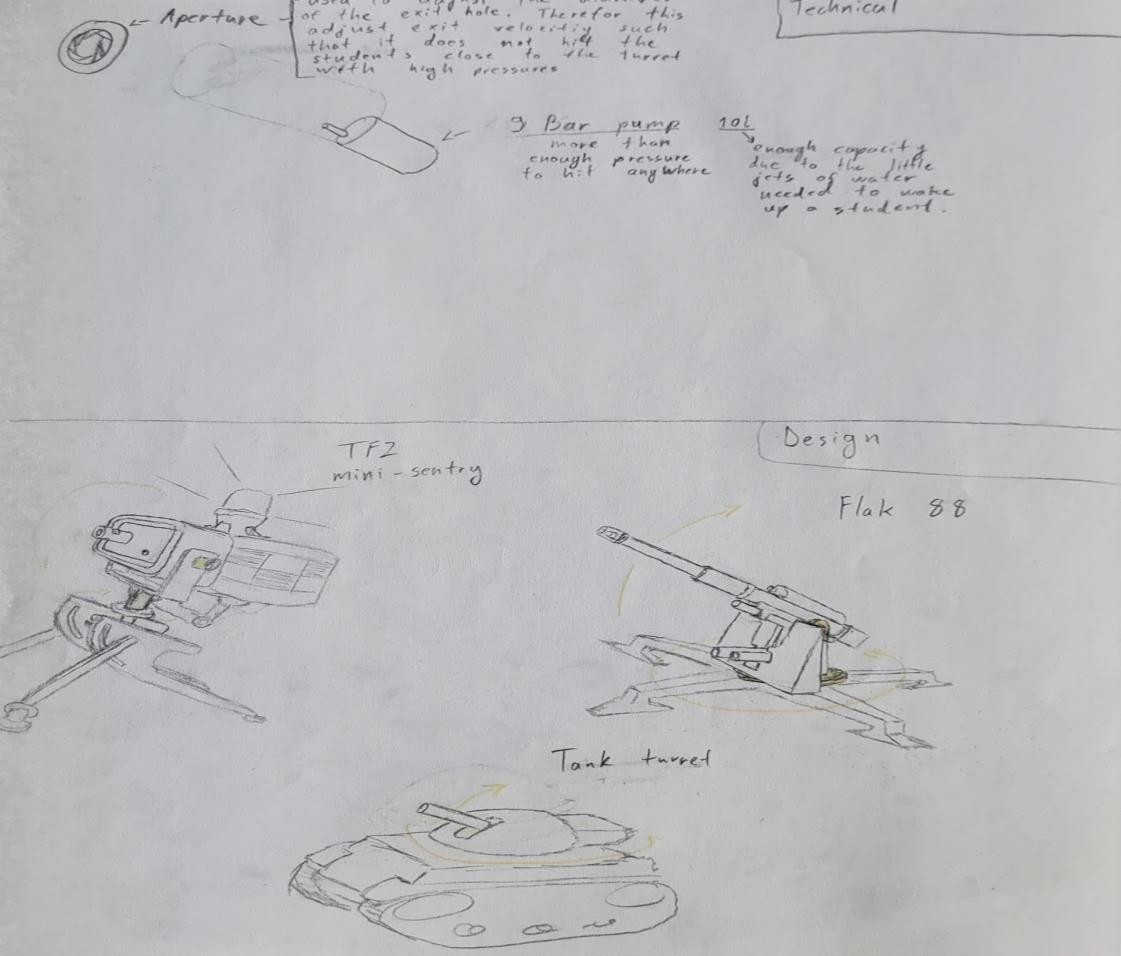 Aperture
of the exit hole. Therefor this
adjust exit velocity such
that it does not hit the
students close to the turret
with high pressures
Technical
9 Bar pump
more than
enough pressure
to hit anywhere
10l
enough capacity
due to the little
jets of water
needed to wake
up a student.
TF2
mini-sentry
Design
Flak 88
Tank turret